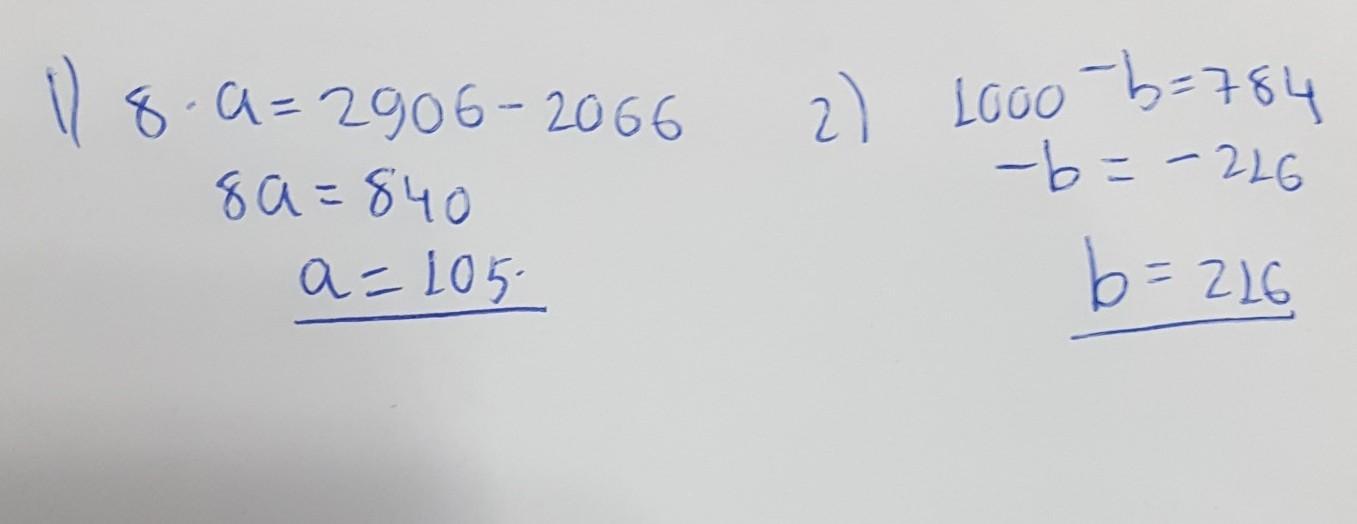 1) 8 · a = 2906 - 2066
8a = 840
a = 105.
2) 1000 - b = 784
-b = - 216
b = 216